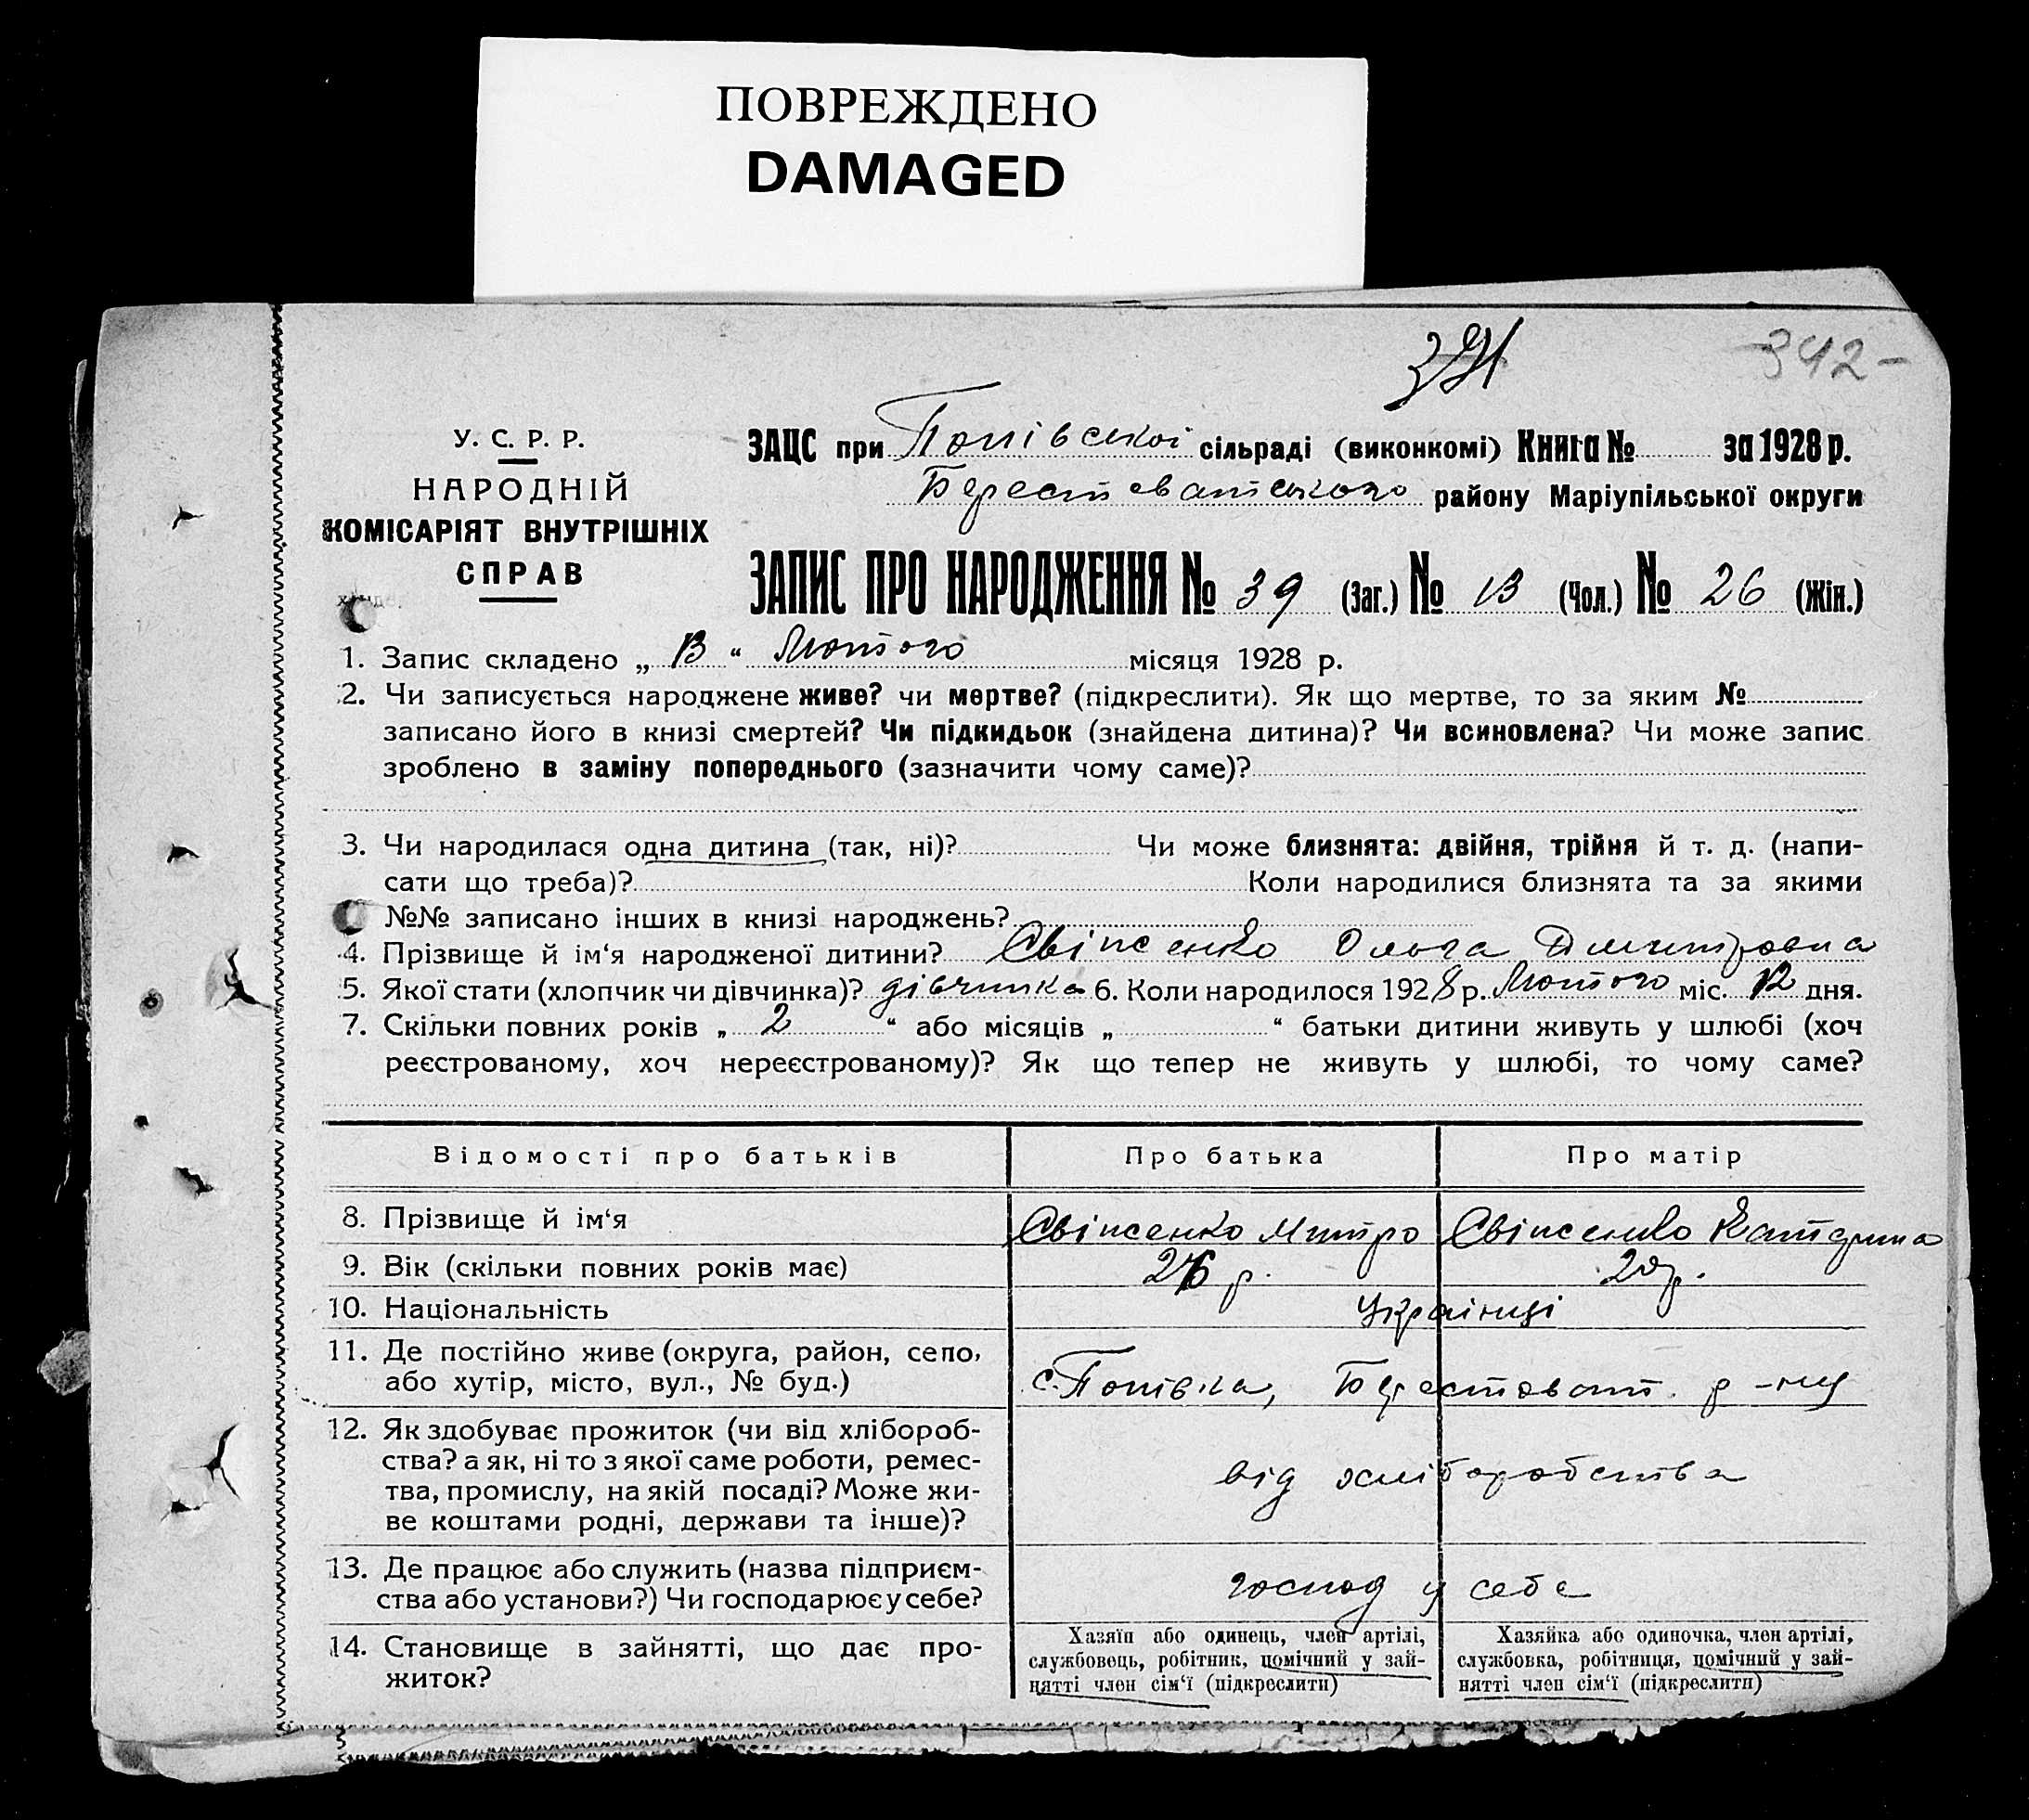 ПОВРЕЖДЕНО
DAMAGED
342-
У. С. Р. Р.
НАРОДНІЙ
КОМІСАРІЯТ ВНУТРІШНІХ
СПРАВ
ЗАЦС при Попівської сільраді (виконкомі) Книга № за 1928 р.
Берестоватського району Маріупільської округи
ЗАПИС ПРО НАРОДЖЕННЯ № 39 (Заг.) № 13 (Чол.) № 26 (Жін.)
1. Запис складено „ 13 “ Лютого місяця 1928 р.
2. Чи записується народжене живе? чи мертве? (підкреслити). Як що мертве, то за яким №
записано його в книзі смертей? Чи підкидьок (знайдена дитина)? Чи всиновлена? Чи може запис
зроблено в заміну попереднього (зазначити чому саме)?
3. Чи народилася одна дитина (так, ні)? Чи може близнята: двійня, трійня й т. д. (напи-
сати що треба)? Коли народилися близнята та за якими
№№ записано інших в книзі народжень?
4. Прізвище й ім‘я народженої дитини? Ольга Дмитровна
5. Якої стати (хлопчик чи дівчинка)? дівчинка 6. Коли народилося 1928 р. Лютого міс. 12 дня.
7. Скільки повних років „ 2 “ або місяців „ “ батьки дитини живуть у шлюбі (хоч
реєстрованому, хоч нереєстрованому)? Як що тепер не живуть у шлюбі, то чому саме?
Відомості про батьків Про батька Про матір
8. Прізвище й ім‘я Митро Катерина
9. Вік (скільки повних років має) 26 р. 20 р.
10. Національність Українці
11. Де постійно живе (округа, район, село, або хутір, місто, вул., № буд.) с. Попівка, Берестоват. р-ну
12. Як здобуває прожиток (чи від хлібороб-
ства? а як, ні то з якої саме роботи, ремес-
тва, промислу, на якій посаді? Може жи-
ве коштами родні, держави та інше)?
від хліборобства
13. Де працює або служить (назва підприєм-
ства або установи?) Чи господарює у себе?
господ у себе
14. Становище в зайнятті, що дає про-
житок?
Хазяїн або одинець, член артілі,
службовець, робітник, помічний у зай-
нятті член сім‘ї (підкреслити)
Хазяйка або одиночка, член артілі,
службовка, робітниця, помічний у зай-
нятті член сім‘ї (підкреслити)